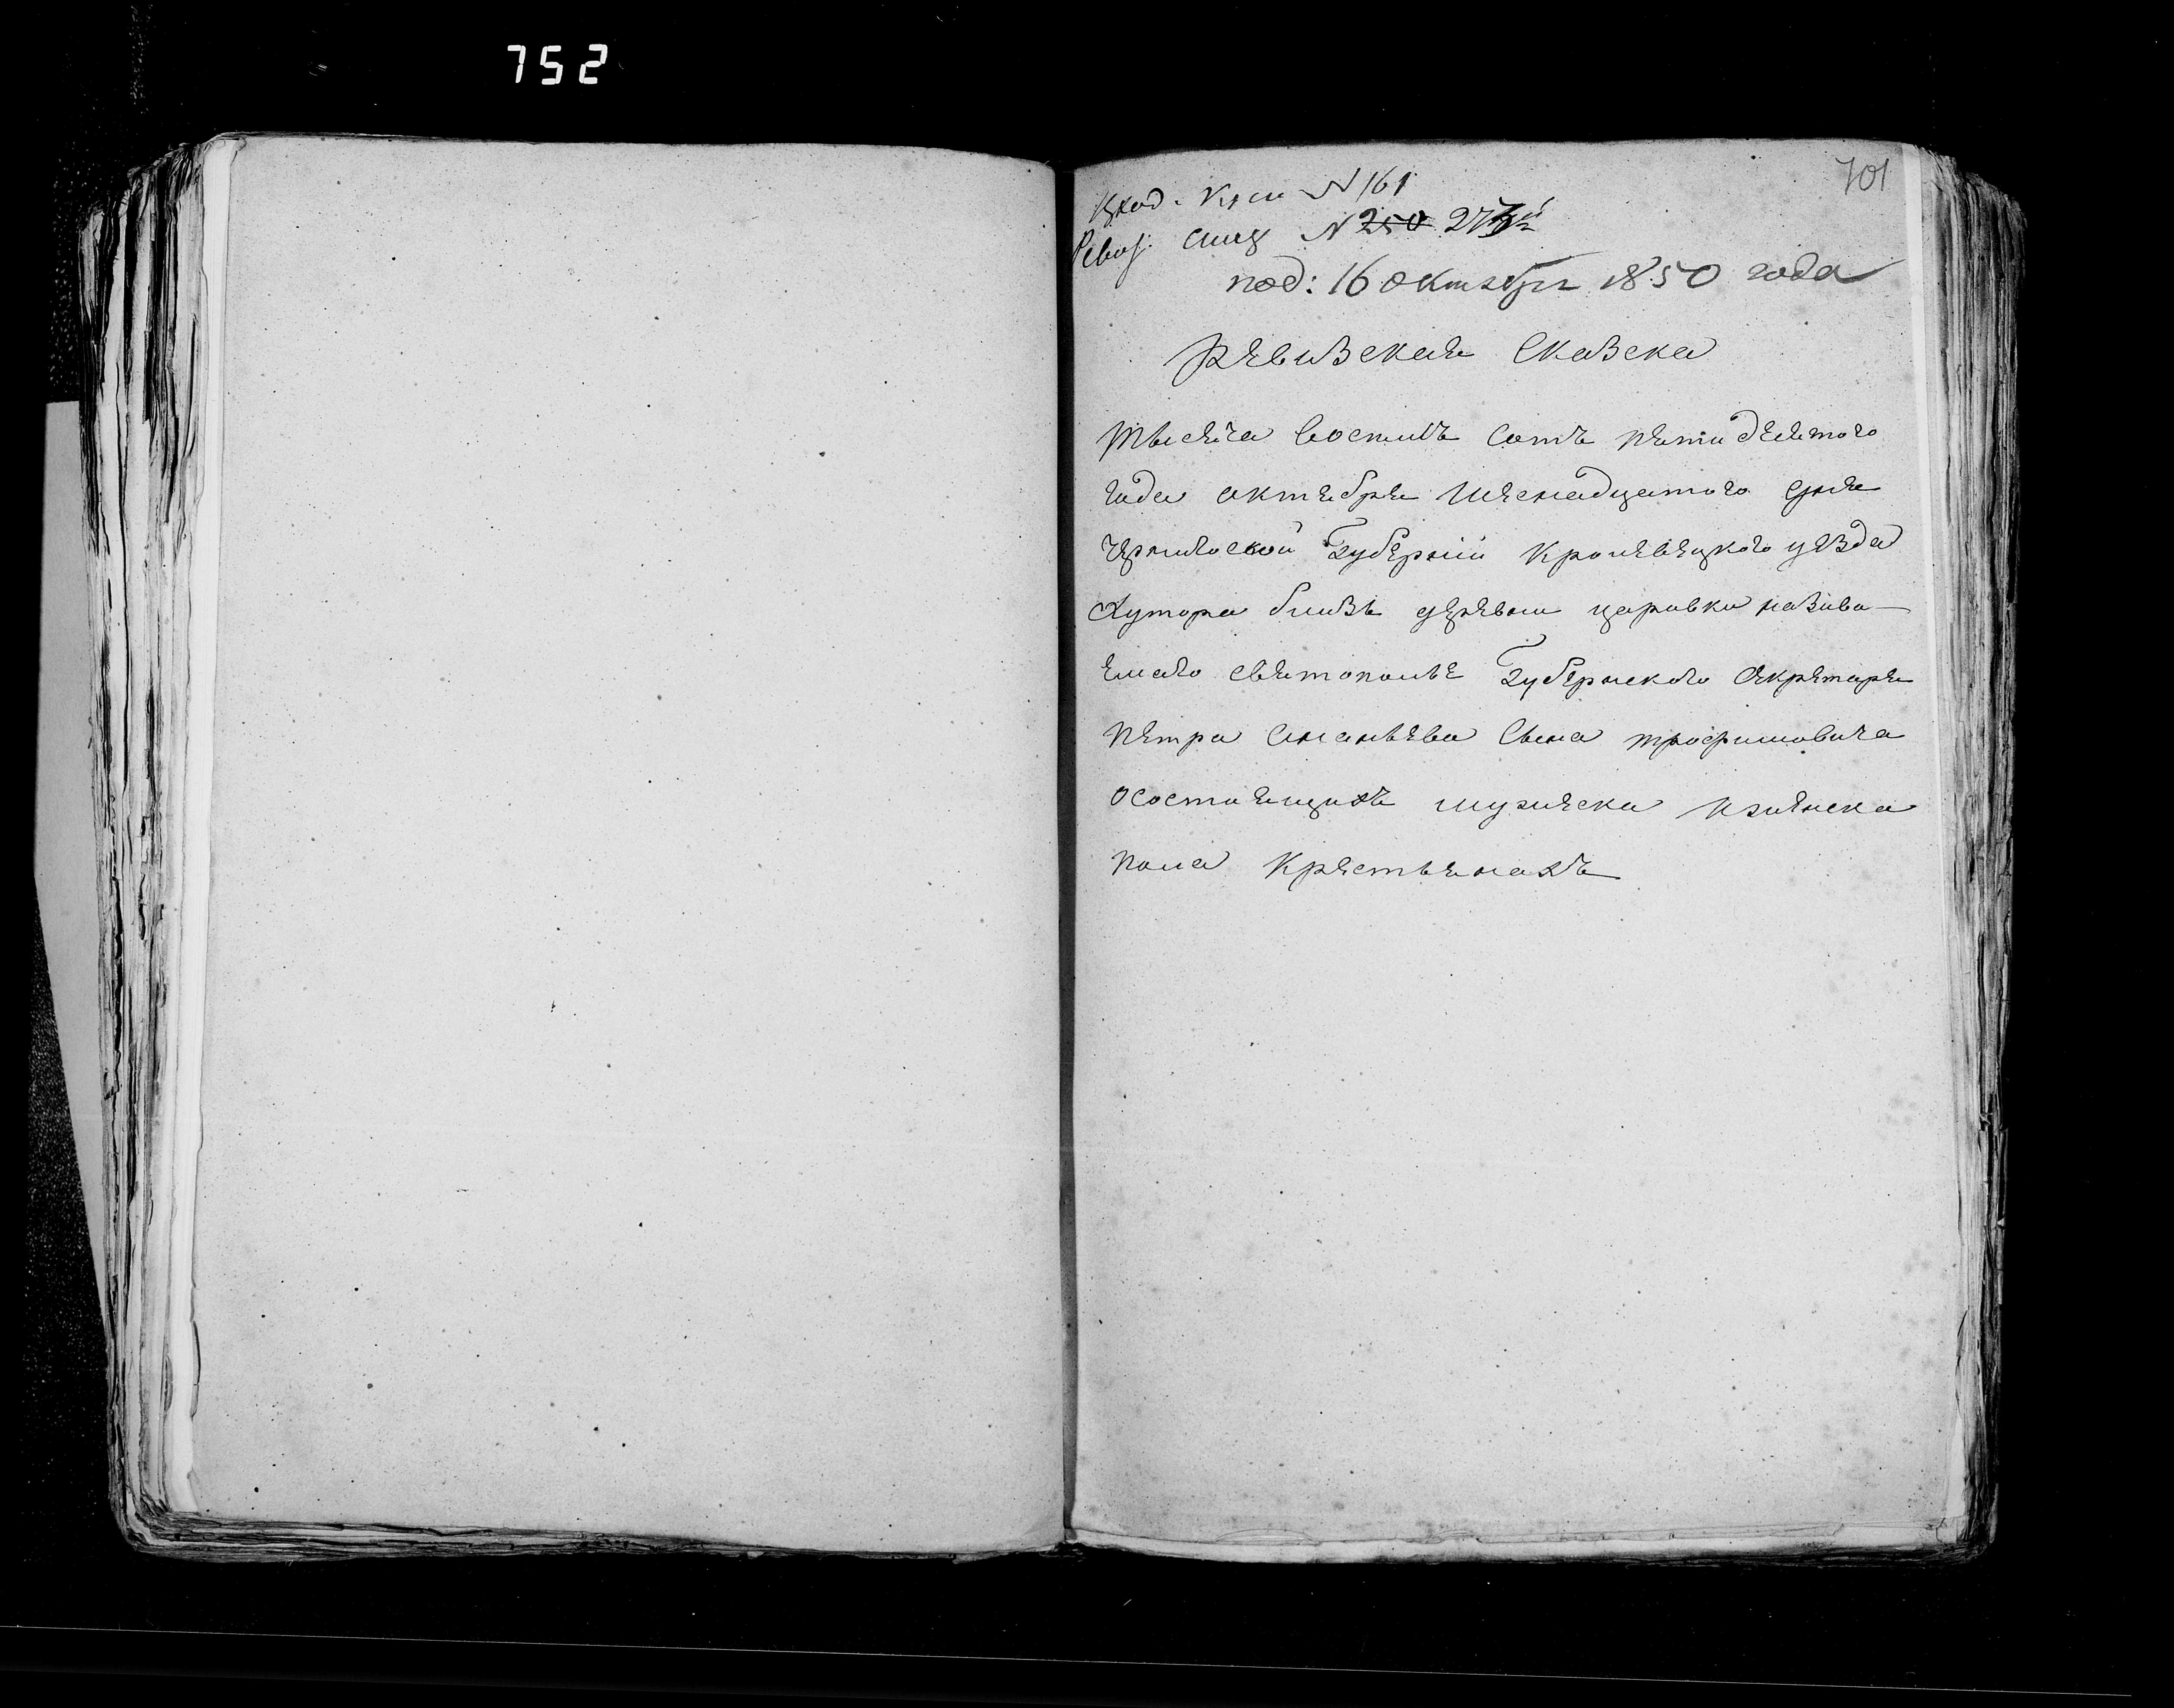 752
701
Вход. N 161
Ревиз. N 250 273
под: 16 октября 1850 года
Ревизская Сказка
Тысяча восимъ сотъ пятидесятого
года октября Шеснадцатого дня
Черниговской Губернии Кролевецкого уезда
Хутора близь деревни царовки назива-
емаго святополье Губернского Секретаря
Петра Ананьева Сына трофимовича
осостаящихъ мужеска и женска
пола Крестьянахъ